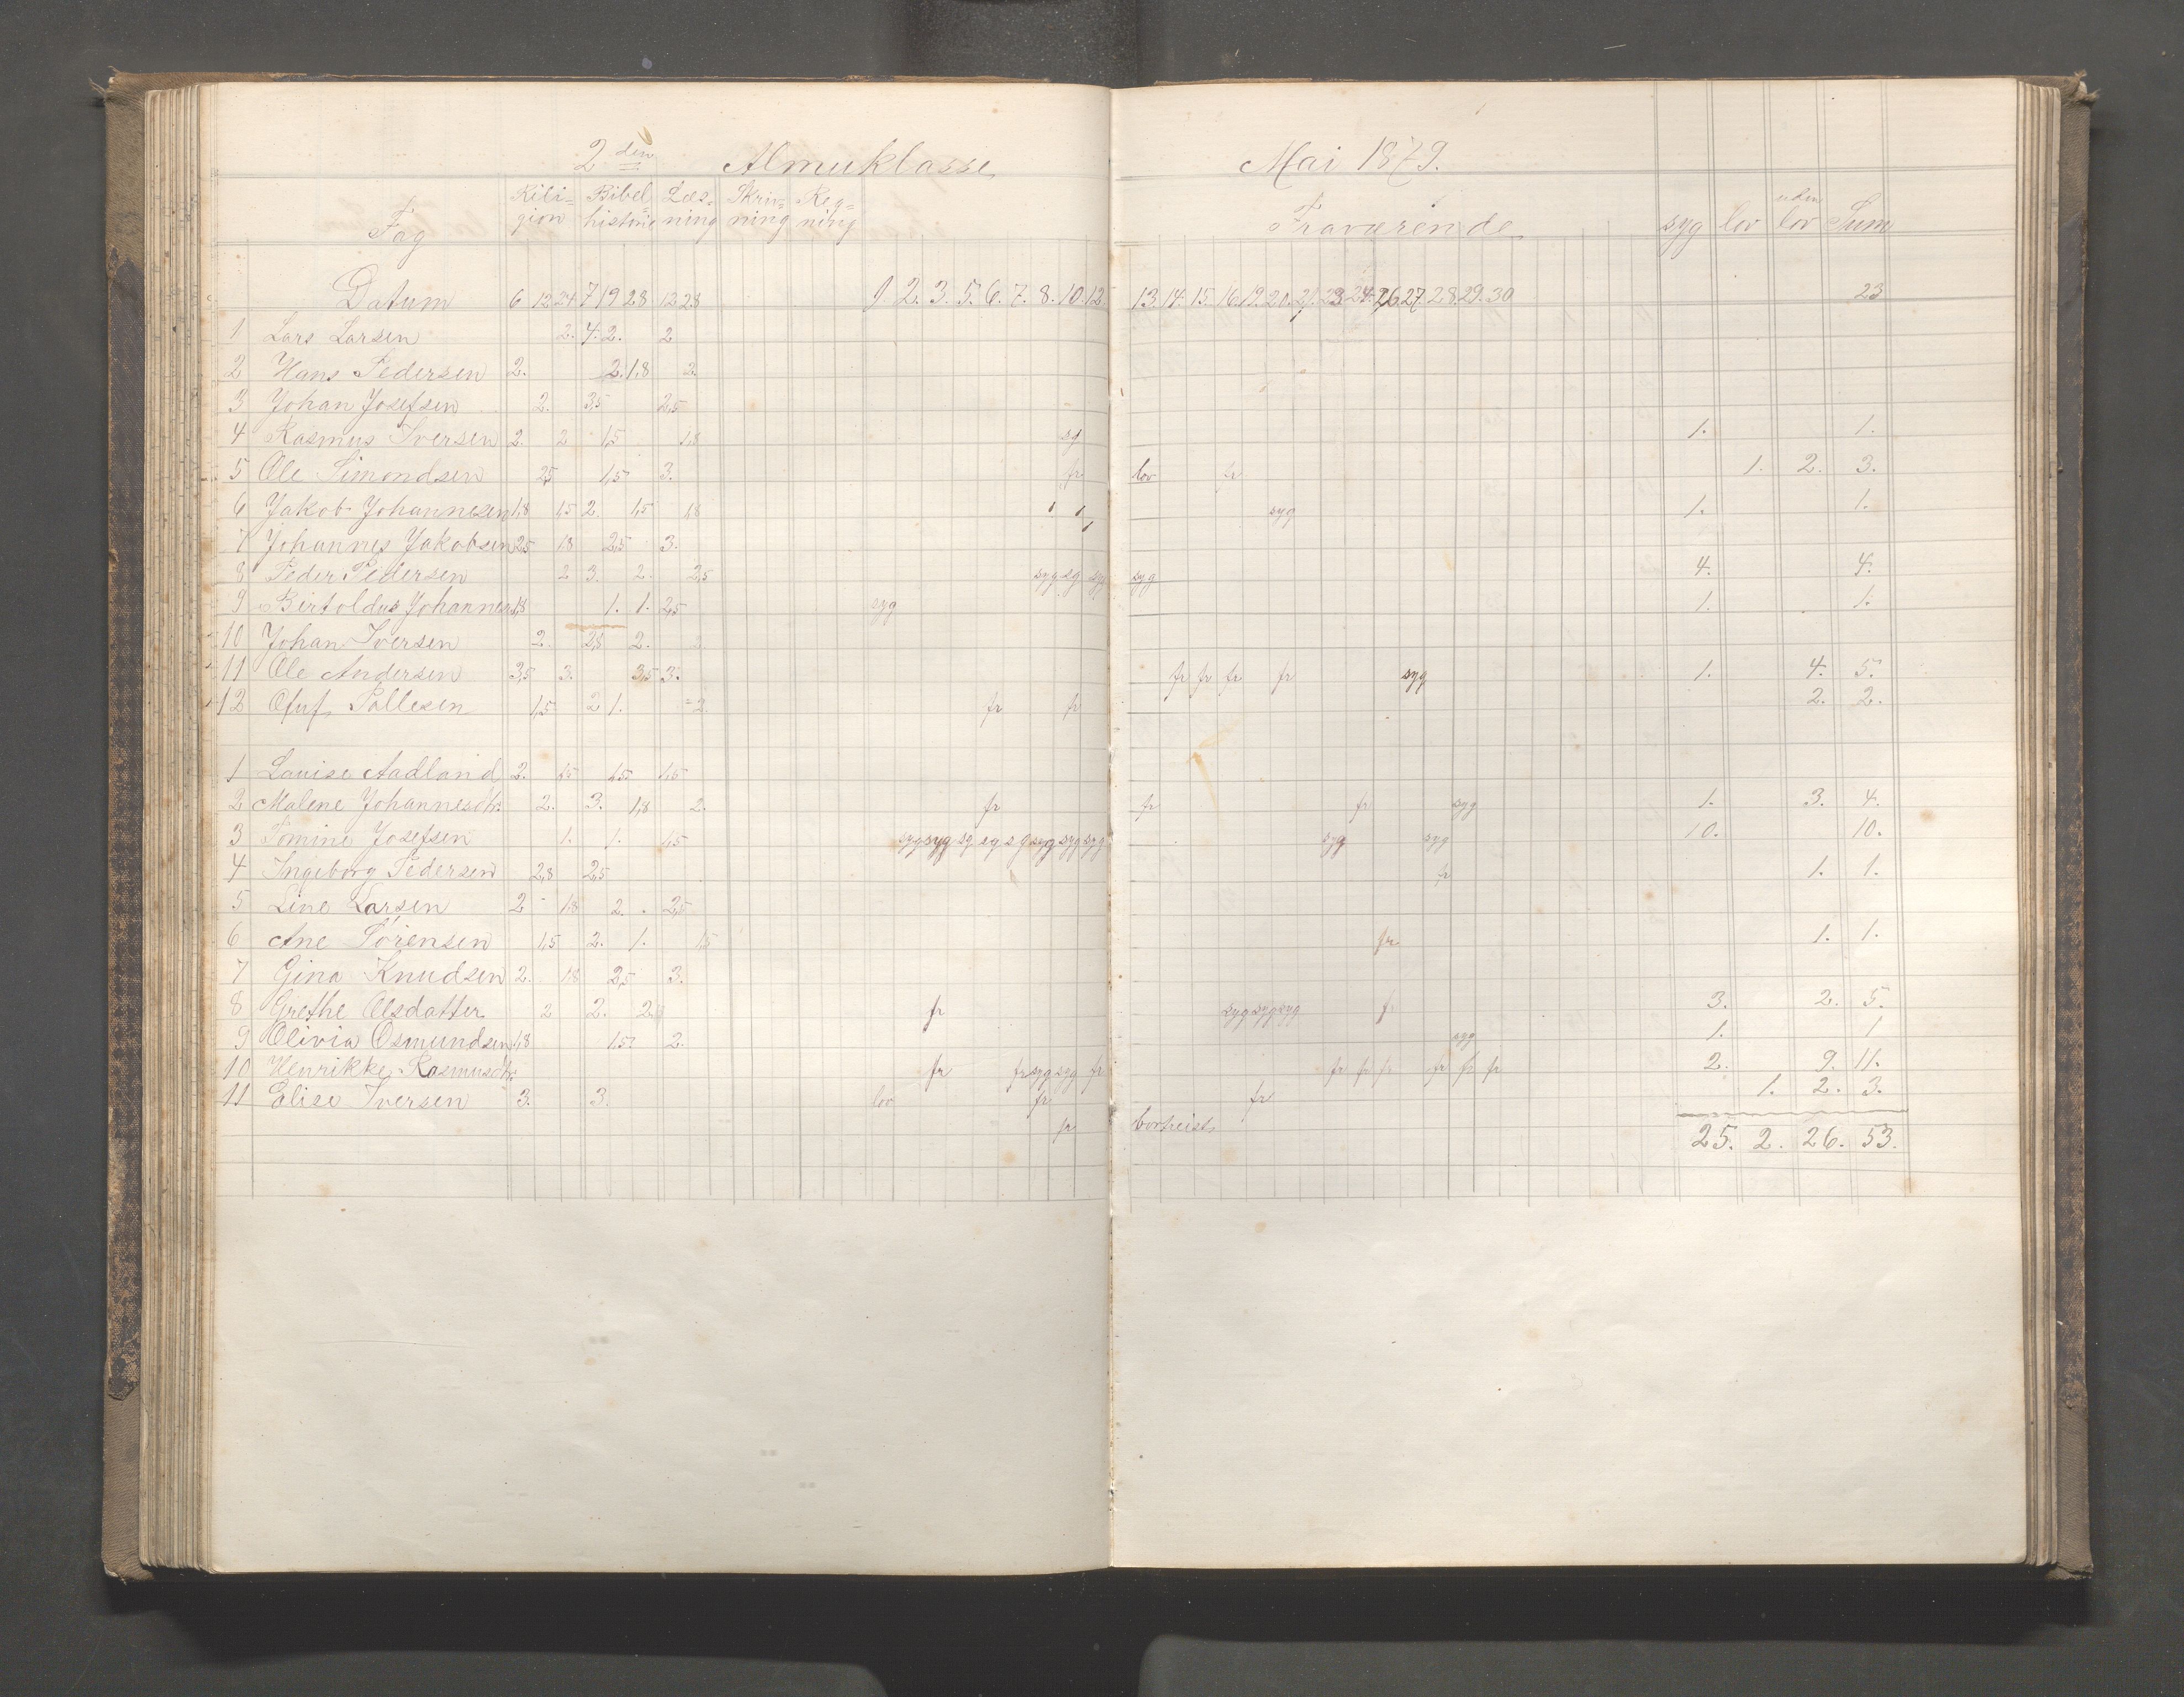 2den Almuklasse Mai 1879.
Fag Religion Bibelhistorie Læsning Skrivning Regning Fraværende syg lov uden lov Sum
Datum 6 12 24 7 19 28 12 28 1. 2. 3. 5. 6. 7. 8. 10. 12. 13. 14. 15. 16. 19. 20. 21. 23. 24. 26. 27. 28. 29. 30 23
1 Lars Larsen 2. 4. 2. 2
2 Hans Pedersen 2. 2. 1,8 2.
3 Johan Josefsen 2. 3,5 2,5
4 Rasmus Iversen 2. 2 1,5 1,8 sg 1. 1.
5 Ole Simondsen 2,5 1,5 3. fr lov fr 1. 2. 3.
6 Jakob Johannesen 1,8 1,5 2. 1,5 1,8 syg 1. 1.
7 Johannes Jakobsen 2,5 1,8 2,5 3.
8 Peder Pedersen 2 3. 2. 2,5 syg sg syg syg 4. 4.
9 Bertoldus Johannes 1,8 1. 1. 2,5 syg 1. 1.
10 Johan Iversen 2. 2,8 2. 2.
11 Ole Andersen 3,5 3. 3,5 3. fr fr fr fr syg 1. 4. 5.
12 Oluf Pallesen 1,5 2 1. 2. fr fr 2. 2.
1 Lauise Aadland 2. 1,5 1,5 1,5
2 Malene Johannesdtr. 2. 3. 1,8 2. fr fr fr syg 1. 3. 4.
3 Tomine Josefsen 1. 1. 1,5 syg syg sg sg sg syg syg syg syg syg 10. 10.
4 Ingeborg Pedersen 2,8 2,5 fr 1. 1.
5 Line Larsen 2 1,8 2. 2,5
6 Ane Sørensen 1,5 2. 1. 1,5 fr 1. 1.
7 Gina Knudsen 2. 1,8 2,5 3.
8 Grethe Olsdatter 2 2. 2. fr syg syg syg fr 3. 2. 5.
9 Olivia Osmundsen 1,8 1,5 2. syg 1. 1
10 Henrikke Rasmusdtr. fr fr syg syg fr fr fr fr fr fr fr 2. 9. 11.
11 Elise Iversen 3. 3. lov fr fr 1. 2. 3.
fr bortreist 25. 2. 26. 53.